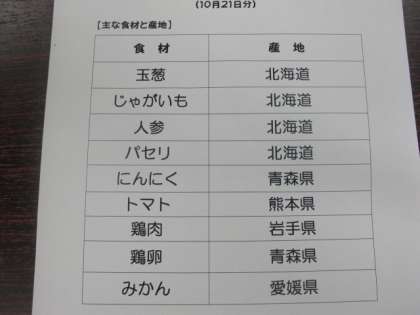 (10月21日分)
【主な食材と産地】
食材 産地
玉葱 北海道
じゃがいも 北海道
人参 北海道
パセリ 北海道
にんにく 青森県
トマト 熊本県
鶏肉 岩手県
鶏卵 青森県
みかん 愛媛県